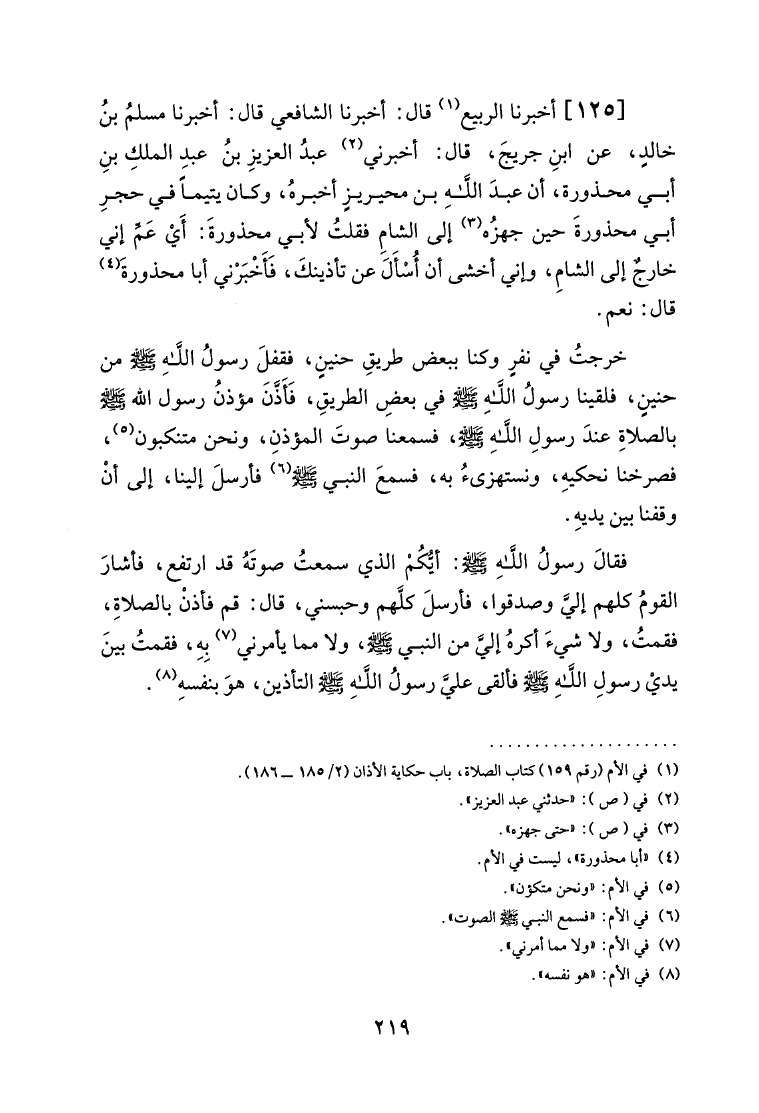 [١٢٥] أخبرنا الربيع(١) قال: أخبرنا الشافعي قال: أخبرنا مسلمُ بنُ
خالدٍ، عن ابنِ جريجَ، قال: أخبرني(٢) عبدُ العزيزِ بنُ عبدِ الملكِ بنِ
أبـي محـذورة، أن عبـدَ اللَّـهِ بـن محيـريـزٍ أخبـرهُ، وكـان يتيمـاً فـي حجـرِ
أبـي محذورةَ حين جهزُه(٣) إلى الشامِ فقلتُ لأبـي محذورةَ: أيْ عَمِّ إني
خارجٌ إلى الشامِ، وإني أخشى أن أُسْأَلَ عن تأذينكَ، فَأَخْبَرْني أبا محذورةَ(٤)
قال: نعم.
خرجتُ في نفرٍ وكنا ببعض طريقِ حنينٍ، فقفلَ رسولُ اللَّهِ ﷺ من
حنينٍ، فلقينا رسولُ اللَّهِ ﷺ في بعضِ الطريقِ، فَأَذَّنَ مؤذنُ رسول الله ﷺ
بالصلاةِ عندَ رسولِ اللَّهِ ﷺ، فسمعنا صوتَ المؤذنِ، ونحن متنكبون(٥)،
فصرخنا نحكيهِ، ونستهزىءُ به، فسمعَ النبـي ﷺ(٦) فأرسلَ إلينا، إلى أنْ
وقفنا بين يديهِ.
فقالَ رسولُ اللَّهِ ﷺ: أيُّكُمْ الذي سمعتُ صوتَهُ قد ارتفع، فأشارَ
القومُ كلهم إليَّ وصدقوا، فأرسلَ كلَّهم وحبسني، قال: قم فأذنْ بالصلاةِ،
فقمتُ، ولا شيءَ أكرهُ إليَّ من النبـي ﷺ، ولا مما يأمرني(٧) بِهِ، فقمتُ بينَ
يديْ رسولِ اللَّهِ ﷺ فألقى عليَّ رسولُ اللَّهِ ﷺ التأذين، هوَ بنفسهِ(٨).
(١) في الأم (رقم ١٥٩) كتاب الصلاة، باب حكاية الأذان (٢/ ١٨٥ ــ ١٨٦).
(٢) في ( ص ): «حدثني عبد العزيز».
(٣) في ( ص ): «حتى جهزه».
(٤) «أبا محذورة»، ليست في الأم.
(٥) في الأم: «ونحن متكؤن».
(٦) في الأم: «فسمع النبـي ﷺ الصوت».
(٧) في الأم: «ولا مما أمرني».
(٨) في الأم: «هو نفسه».
٢١٩